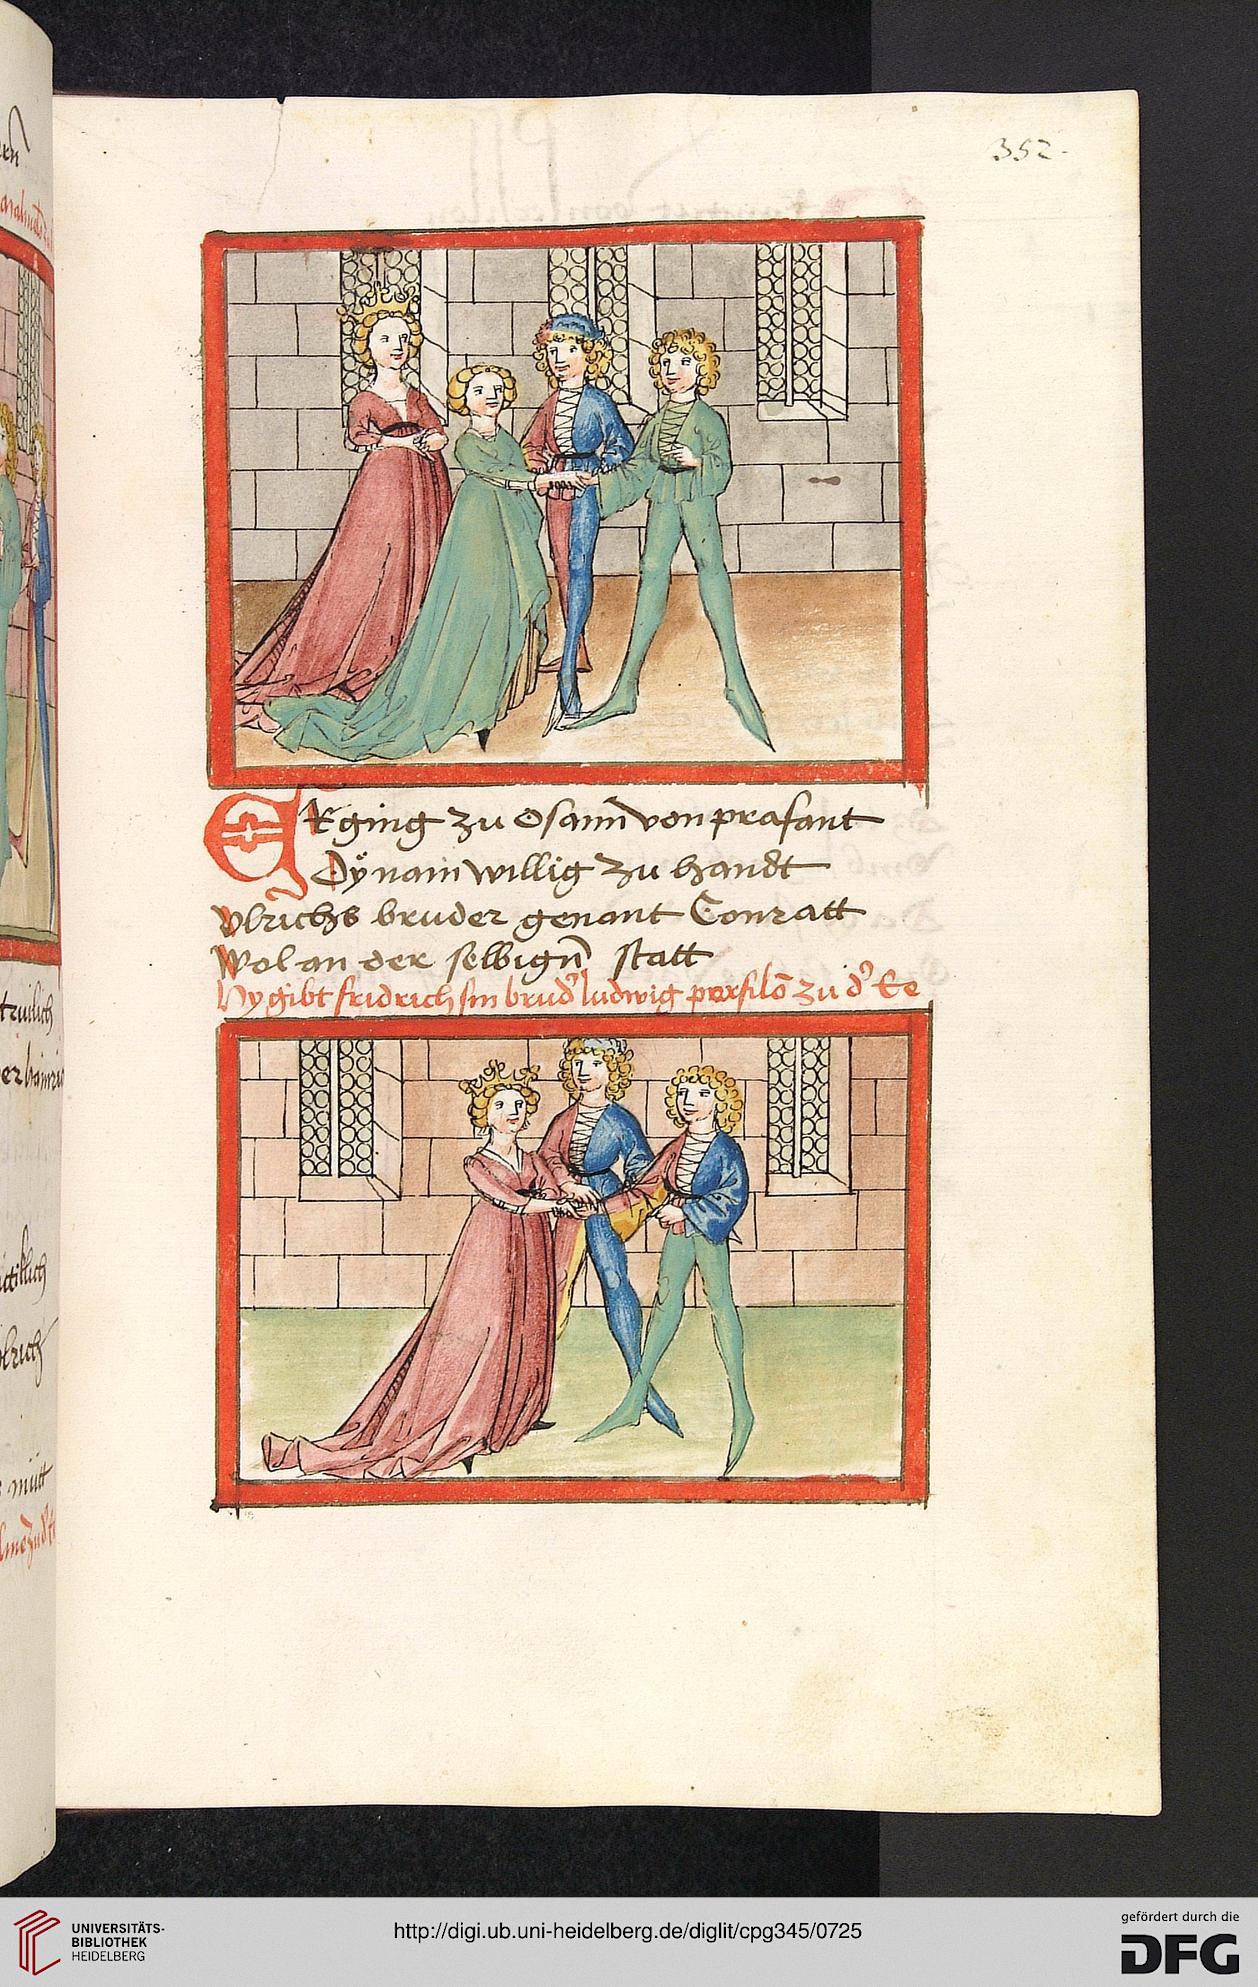 352.
ERging zu Osann̄ von prafant
Dÿ nam willig zu handt
Vlrichs bruder genant Conratt
Wol an der selbign̄ statt
Hy gibt fridrich sin brud' ludwig persilō zu d' Ee
UNIVERSITÄTS-
BIBLIOTHEK
HEIDELBERG
http://digi.ub.uni-heidelberg.de/diglit/cpg345/0725
gefördert durch die
DFG